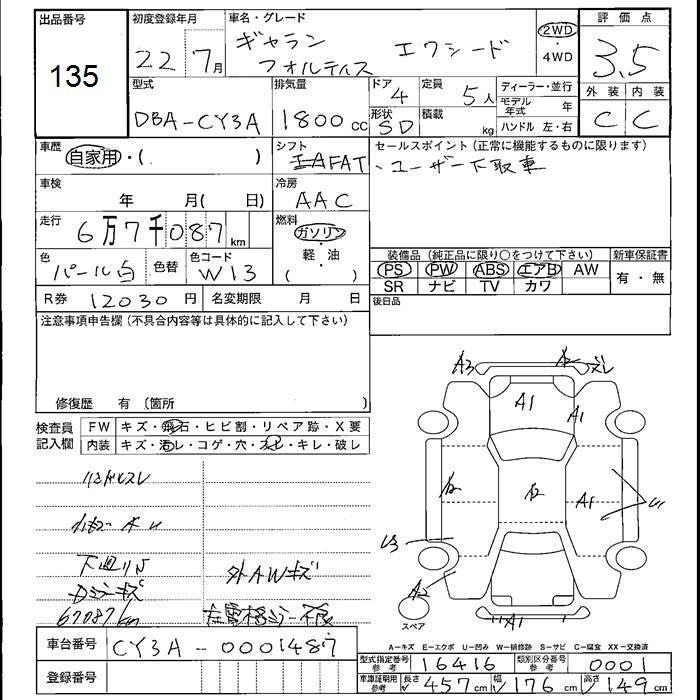 出品番号 初度登録年月 車名・グレード 評価点
135 22 7月 ギャラン フォルティス エクシード 2WD・4WD 3.5
型式 排気量 ドア 定員 ディーラー・並行 外装 内装
DBA-CY3A 1800cc 4 5人 モデル年式 年 C C
形状 積載
SD kg ハンドル 左・右
車歴 シフト セールスポイント(正常に機能するものに限ります)
自家用・( ) FAT ・ユーザー下取車
車検 冷房
年 月( 日) AAC
走行 燃料
6万7千087km ガソリン
軽・油
( )
色 色替 色コード 装備品(純正品に限り○をつけて下さい) 新車保証書
パール白 W13 PS PW ABS エアB AW 有・無
SR ナビ TV カワ
R券 12030円 名変期限 月 日 後日品
注意事項申告欄(不具合内容等は具体的に記入して下さい)
修復歴 有 〔箇所 〕
検査員 FW キズ・飛石・ヒビ割・リペア跡・X要
記入欄 内装 キズ・汚レ・コゲ・穴・スレ・キレ・破レ
A3 A2 ズレ
A1 A1
A2 A2 A1 U
U3
A2
A1
スペア
ハンドルスレ
下廻りS
外AWキズ
67087km 左電格ミラー不良
車台番号 CY3A-0001487
登録番号
A-キズ E-エクボ U-凹み W-補修跡 S-サビ C-腐食 XX-交換済
型式指定番号 参考 16416 類別区分番号 参考 0001
車庫証明用 参考 長さ 457cm 幅 176cm 高さ 149cm